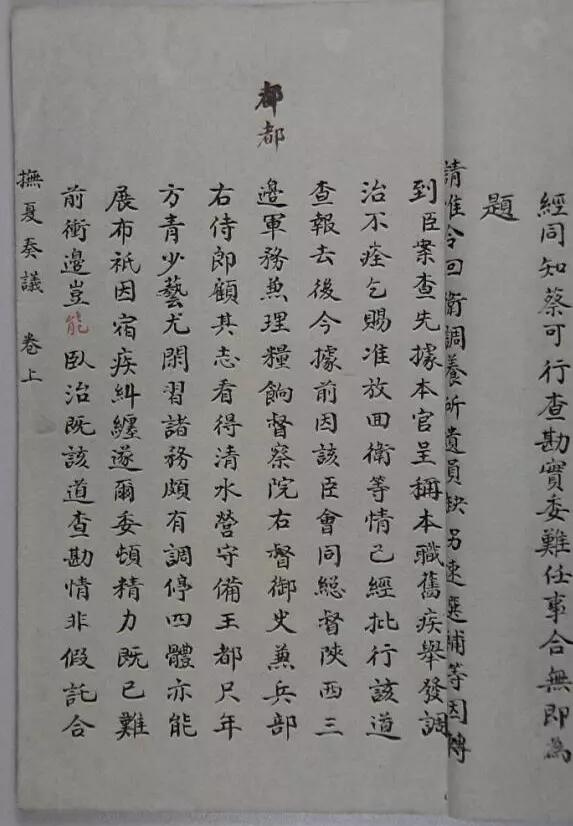 經同知蔡可行查勘實委難任事合無即為
題
請准令回衛調養所遺員缺另速選補等因轉
到臣案查先據本官呈稱本職舊疾舉發調
治不痊乞賜准放回衛等情已經批行該道
查報去後今據前因該臣會同総督陝西三
邊軍務兼理糧餉督察院右督御史兼兵部
右侍郎顧其志看得清水營守備王都尺年
方青少藝尤閑習諸務頗有調停四體亦能
展布祇因宿疾糾纏遂爾委頓精力既已難
前衝邊豈能臥治既該道查勘情非假託合
都
都
撫夏奏議 卷上